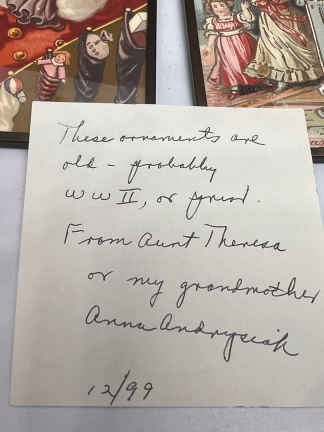 These ornaments are
old - probably
WW II, or period.
From Aunt Theresa
or my grandmother
Anna Andrysiak
12/99